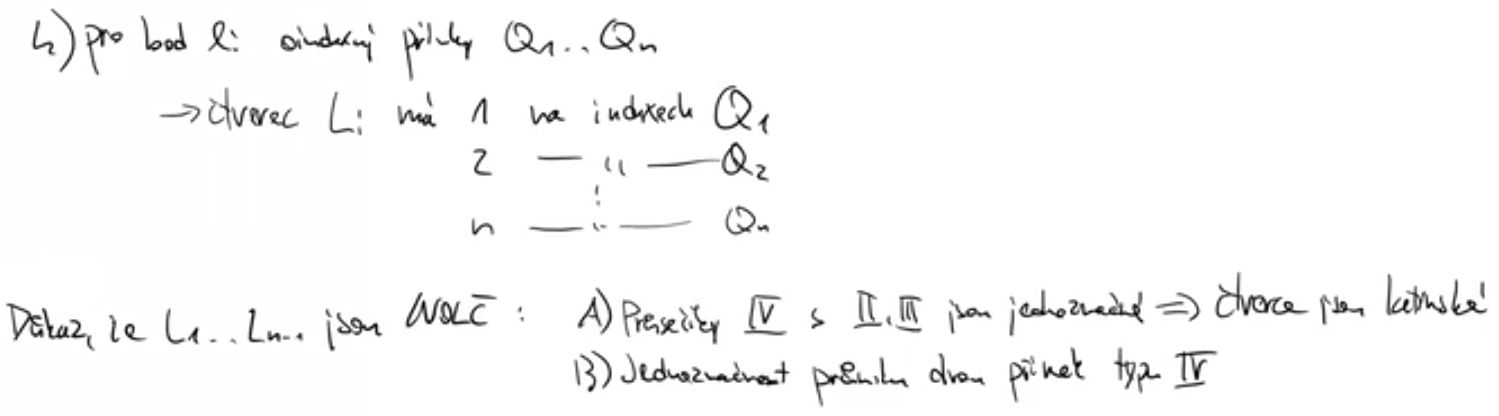 4) pro bod li očíslujy přímky Q1...Qn
→ čtverec Li má 1 na indexech Q1
2 — " — Q2
⋮
n — " — Qn
Důkaz, že L1...Ln-1 jsou NOLČ : A) Průsečíky IV s II, III jsou jednoznačné ⇒ čtverce jsou latinské
B) Jednoznačnost průniku dvou přímek typu IV